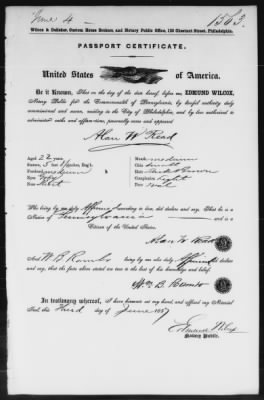 June 4 1563.
Wilcox & Gallaher, Custom House Brokers, and Notary Public Office, 130 Chestnut Street, Philadelphia.
PASSPORT CERTIFICATE.
United States of America.
Be it Known, That on the day of the date hereof, before me, EDMUND WILCOX,
Notary Public for the Commonwealth of Pennsylvania, by lawful authority duly
commissioned and sworn, residing in the City of Philadelphia, and by law authorized to
administer oaths and affirmations, personally came and appeared
Alan W Read
Aged 22 years
Stature, 5 feet inches, Eng'h
Forehead, medium
Eyes,
Nose,
Mouth, medium
Chin, small
Hair, dark brown
Complexion, light
Face, oval
Who being by me duly Affirmed according to law, did declare and say, That he is a
Native of Pennsylvania and is a
Citizen of the United States.
Alan W Read
And W B Rambo being by me also duly Affirmed did
declare and say, that the facts above stated are true to the best of his knowledge and belief.
Wm B. Rambo
In testimony whereof, I have hereunto set my hand and affixed my Notarial
Seal, this third day of June 1857
Edmund Wilcox
Notary Public.